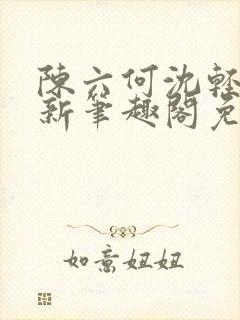 陳六何沈輕
新筆趣閣免
如意妞妞